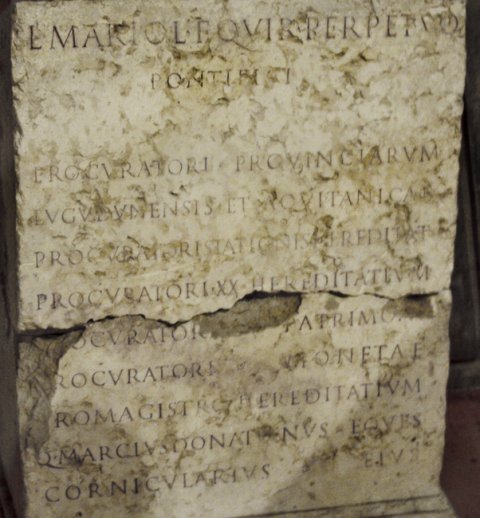 L·MARIO·L·F·QVIR·PERPETVO
PONTIFICI
PROCVRATORI PROVINCIARVM
LVGVDVNENSIS ET AQVITANICAE
PROCVRATORI STATIONIS HEREDITAT
PROCVRATORI·XX·HEREDITATIVM
PROCVRATORI PATRIMONI
PROCVRATORI MONETAE
PROMAGISTRO HEREDITATIVM
Q·MARCIVS DONATIANVS EQVES
CORNICVLARIVS EIVS